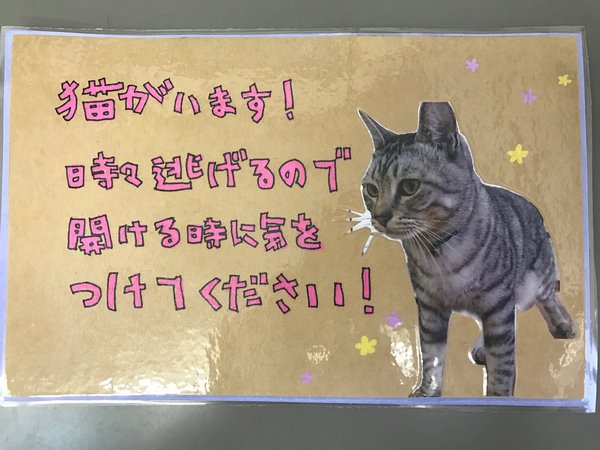 猫がいます!
時々逃げるので
開ける時に気を
つけてください!